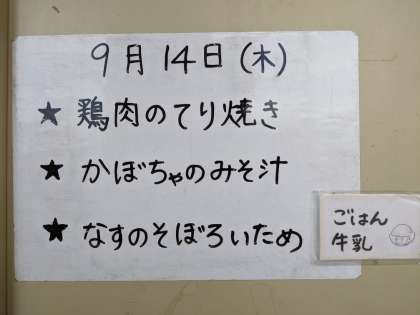 9月14日(木)
★ 鶏肉のてり焼き
★ かぼちゃのみそ汁
★ なすのそぼろいため
ごはん
牛乳